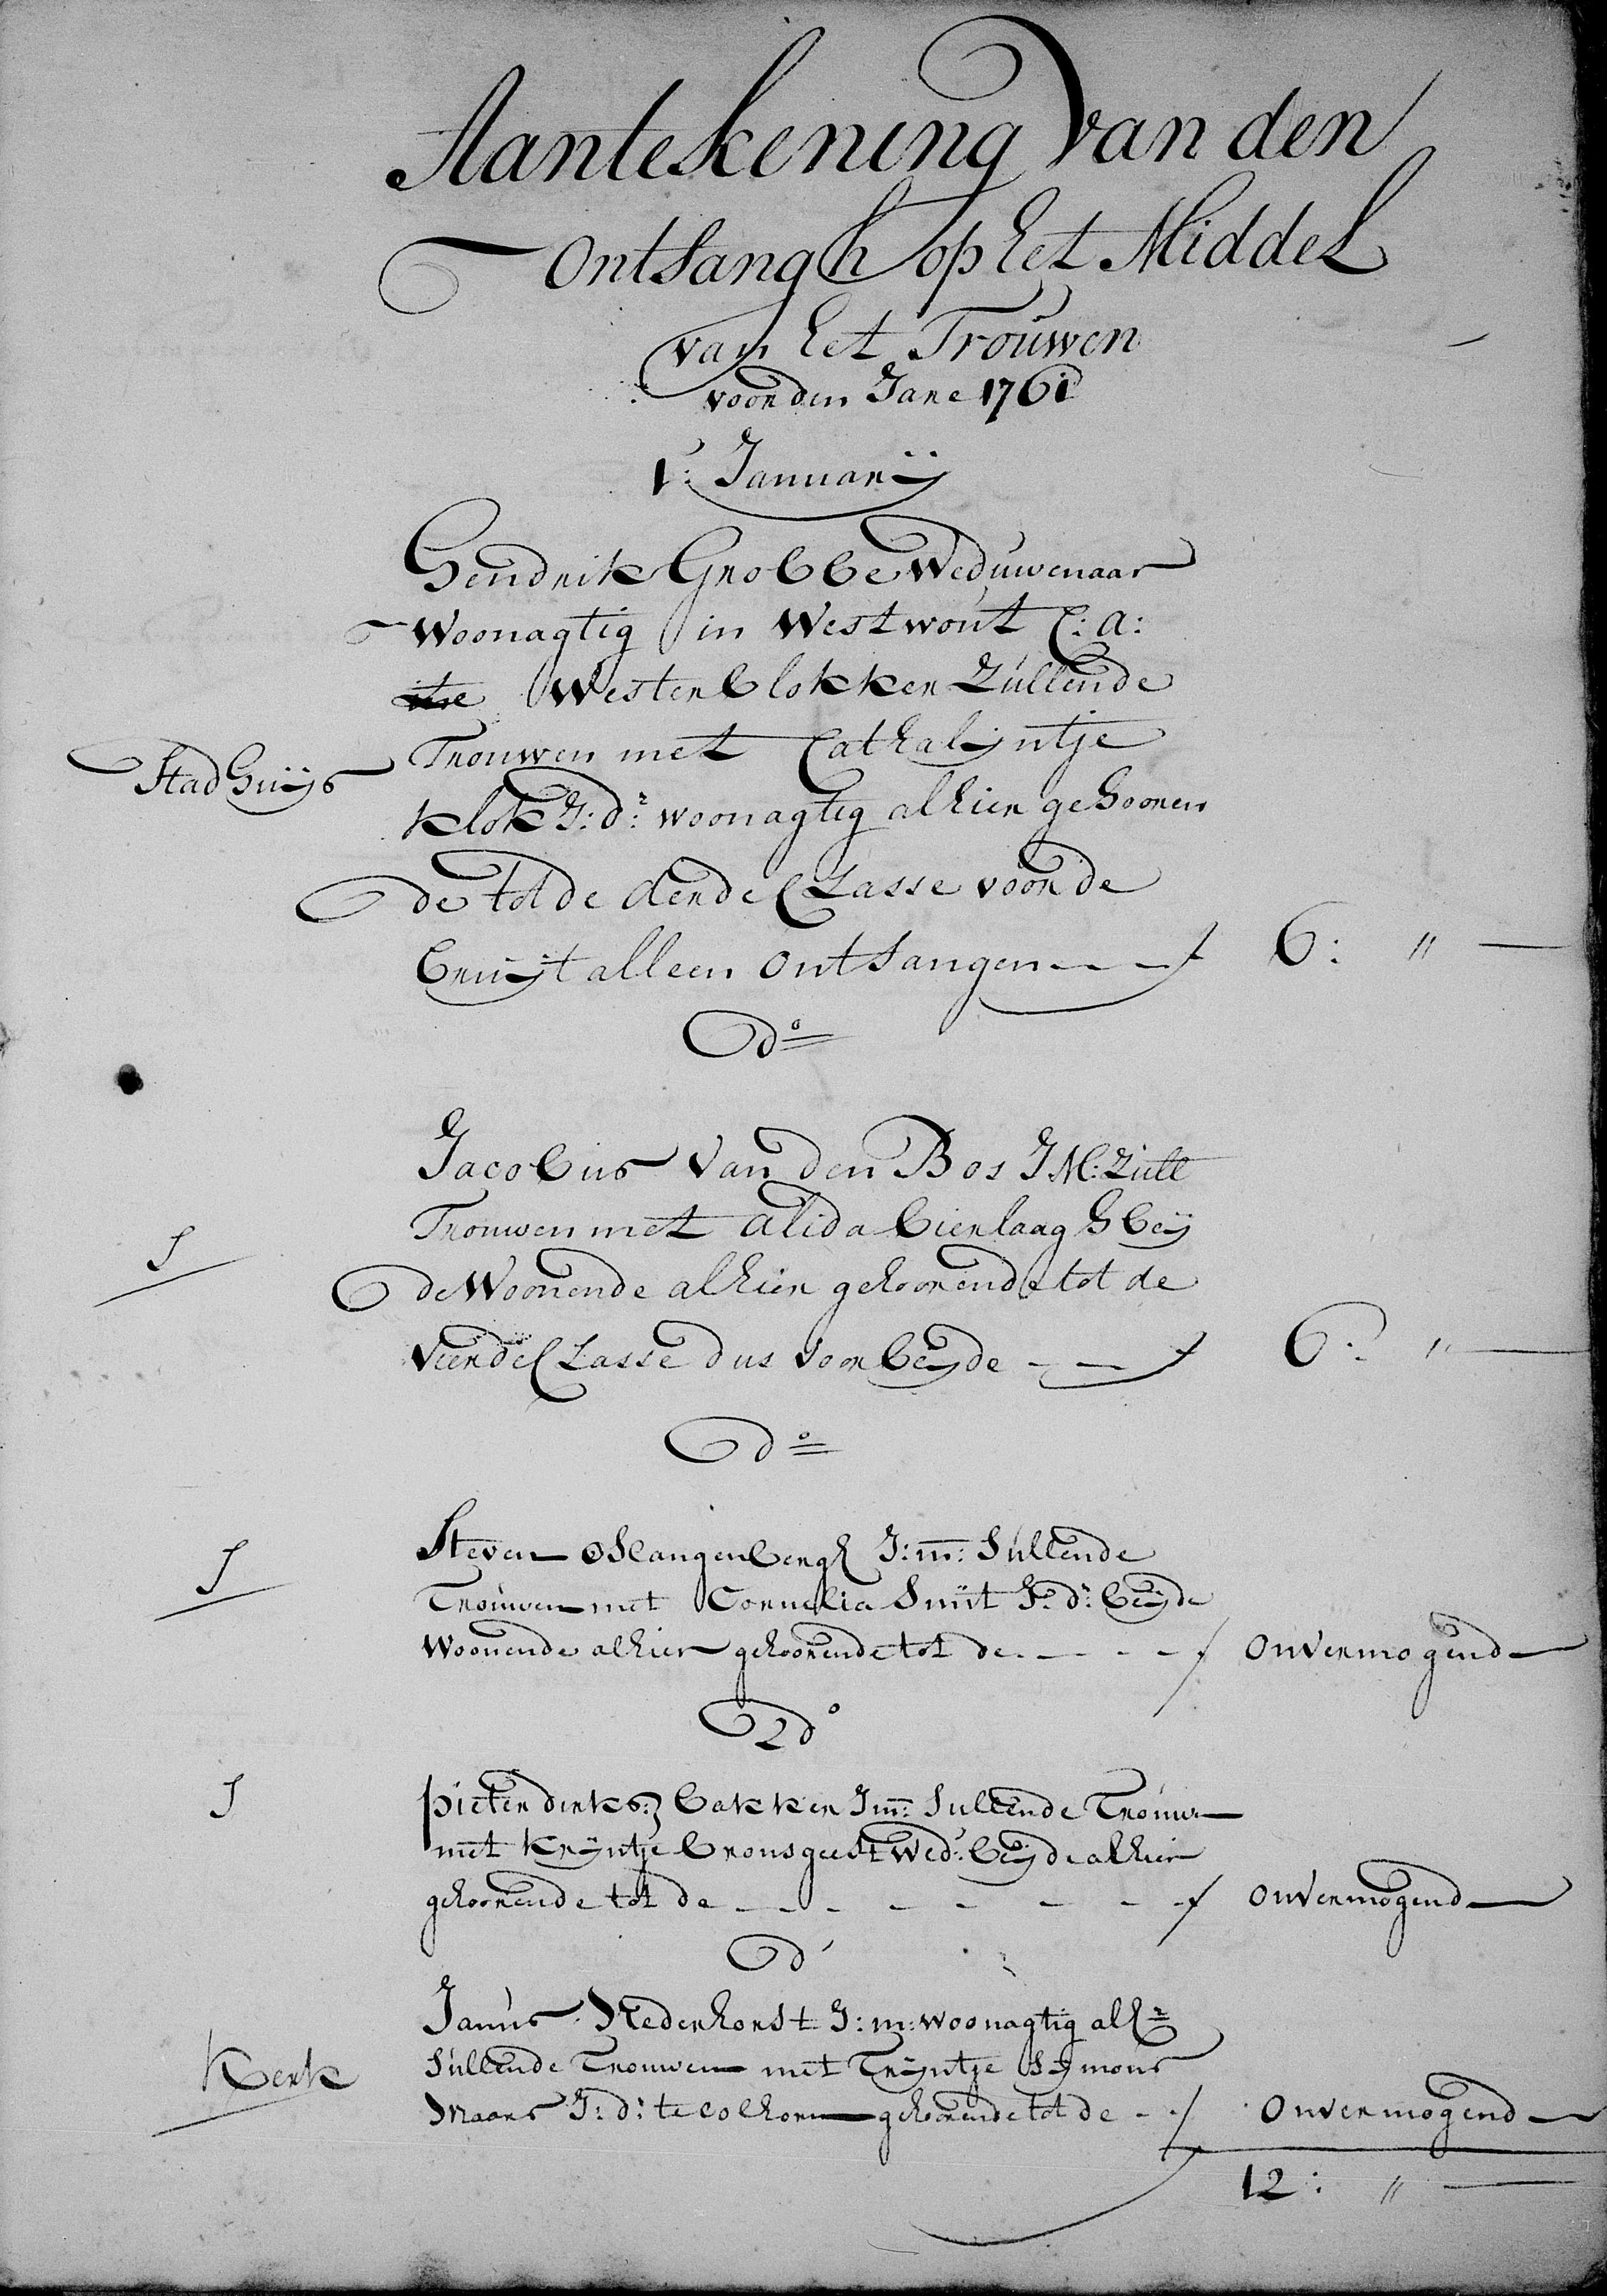 Aantekening van den
Ontfangh op het Middel
van het Trouwen
voor den Jare 1761
1: Januarij
Hendrik Grobbe Weduwenaar
Woonagtig in Westwout C: A:
Westerblokker Zullende
Stadhuijs
Trouwen met Cathalijntje
Klok J: dr: woonagtig alhier gehooren
de tot de derde Classe voor de
bruijt alleen ontfangen - - - f 6: " —
do
Jacobus van den Bos J M: Zull
Trouwen met Alida bierlaagh beij
S
de Woonende alhier gehoorende tot de
vierde Classe dus voor beijde - - f 6: " —
do
Steven Slangenbergh J: m: Sullende
S
Trouwen met Cornelia Smit J: d: beijde
Woonende alhier gehoorende tot de - - - - f onvermogend
2 do
S
pieter dirksz: bakker Jm: Sullende Trouwen
met Krijntje bronsgeest Wed: beijde alhier
gehoorende tot de - - - - - - - f onvermogend
do
Janus Nederhorst J: m: woonagtig alhr
Kerk
Sullende Trouwen met Trijntje Sijmons
Maars J: d: te Colhorn gehoorende tot de - - f onvermogend
12: " —